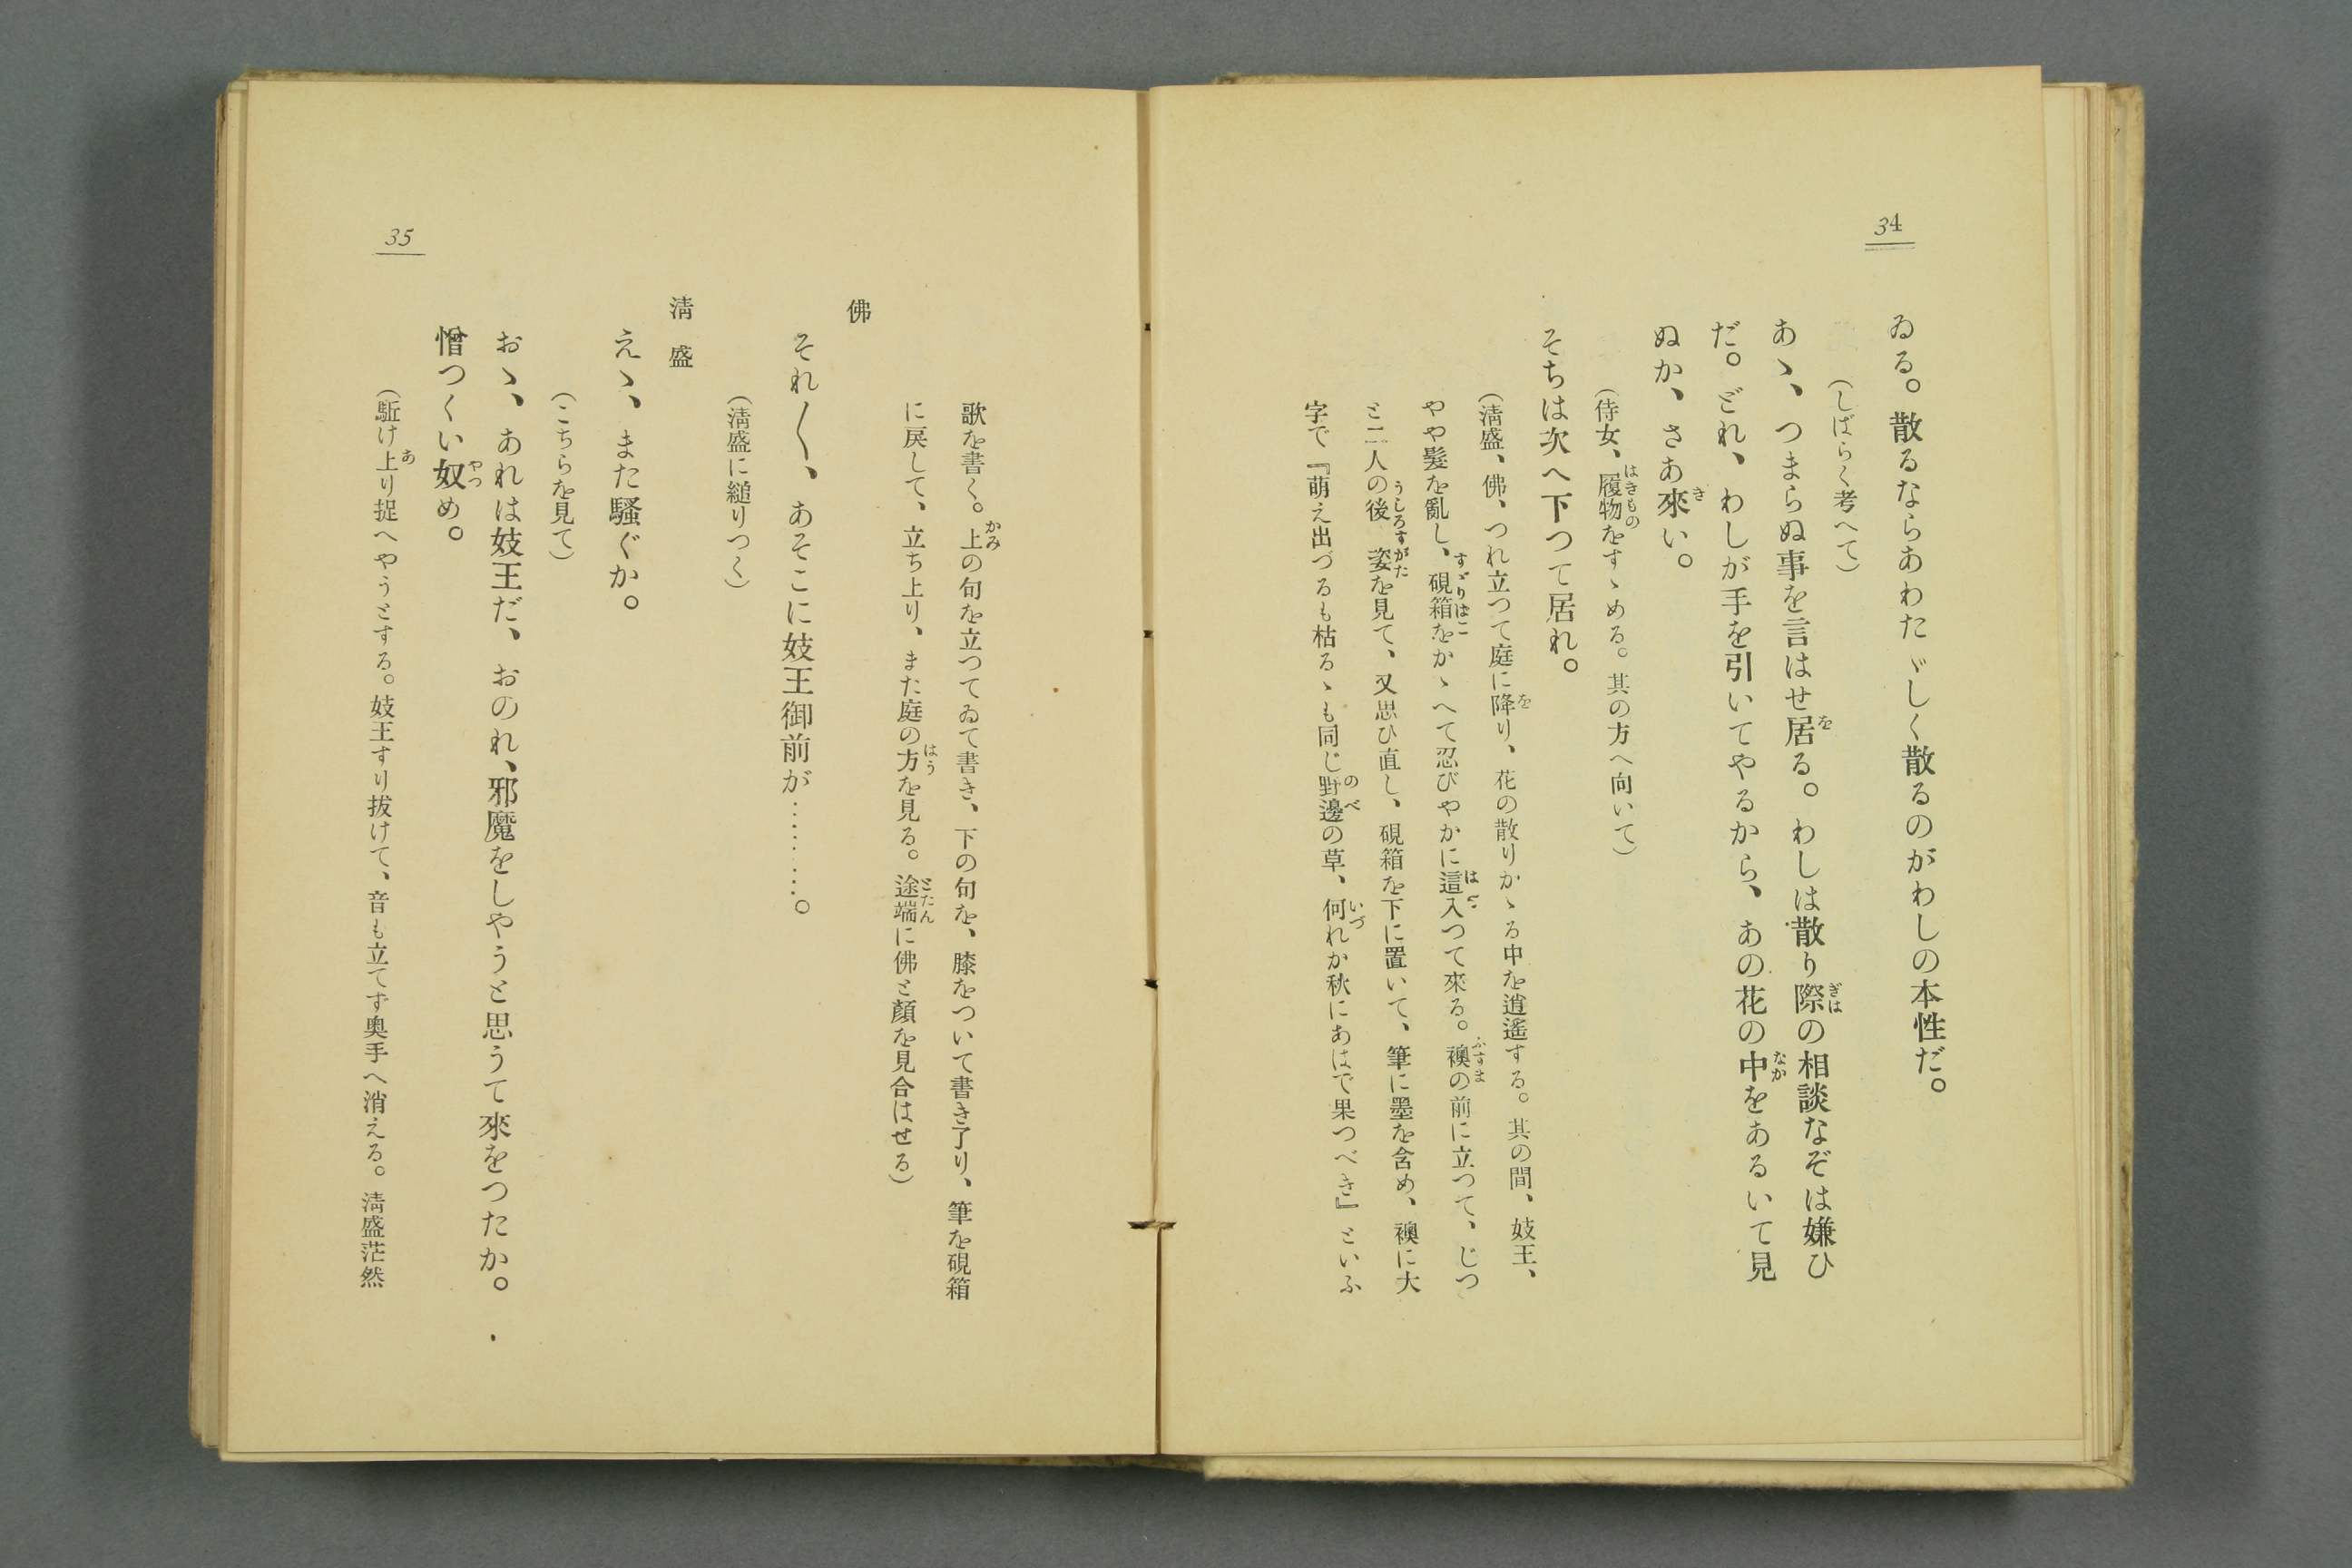 34
ゐる。散るならあわたゞしく散るのがわしの本性だ。
（しばらく考へて）
あゝ、つまらぬ事を言はせ居る。わしは散り際の相談なぞは嫌ひ
だ。どれ、わしが手を引いてやるから、あの花の中をあるいて見
ぬか、さあ來い。
（侍女、履物をすゝめる。其の方へ向いて）
そちは次へ下つて居れ。
（淸盛、佛、つれ立つて庭に降り、花の散りかゝる中を逍遙する。其の間、妓王、
やや髮を亂し、硯箱をかゝへて忍びやかに這入つて來る。襖の前に立つて、じつ
と二人の後姿を見て、又思ひ直し、硯箱を下に置いて、筆に墨を含め、襖に大
字で『萌え出づるも枯るゝも同じ野邊の草、何れか秋にあはで果つべき』といふ
歌を書く。上の句を立つてゐて書き、下の句を、膝をついて書き了り、筆を硯箱
に戾して、立ち上り、また庭の方を見る。途端に佛と顏を見合はせる）
佛
それ〳〵、あそこに妓王御前が………。
（淸盛に縋りつく）
淸盛
えゝ、また騷ぐか。
（こちらを見て）
おゝ、あれは妓王だ、おのれ、邪魔をしやうと思うて來をつたか。
憎つくい奴め。
（駈け上り捉へやうとする。妓王すり拔けて、音も立てず奧手へ消える。淸盛茫然
35